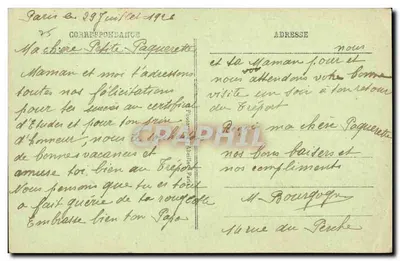 Paris le 29 Juillet 192
CORRESPONDANCE
Ma chère Petite Paquerette
Maman et moi t'adressons
toutes nos félicitations
pour tes succès au certificat
d'Etudes et pour ton prix
d'honneur, nous
de bonnes vacances et
amuse toi bien au Tréport
Nous pensons que tu es tout
a fait guérie de ta rougeole
Embrasse bien ton Papa
ADRESSE
nous
et ta Maman pour et
nous attendons votre bonne
visite un soir à ton retour
du Tréport
ma chère Paquerette
nos bons baisers et
nos compliments
M Bourgogn
14 rue du Perche
CPARAMA